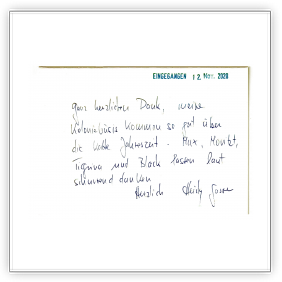 EINGEGANGEN 12. Nov. 2020
ganz herzlichen Dank, meine
kommen so gut über
die kalte Jahreszeit. Max, Monkt,
und Black lassen laut
schnurrend danken
Herzlich